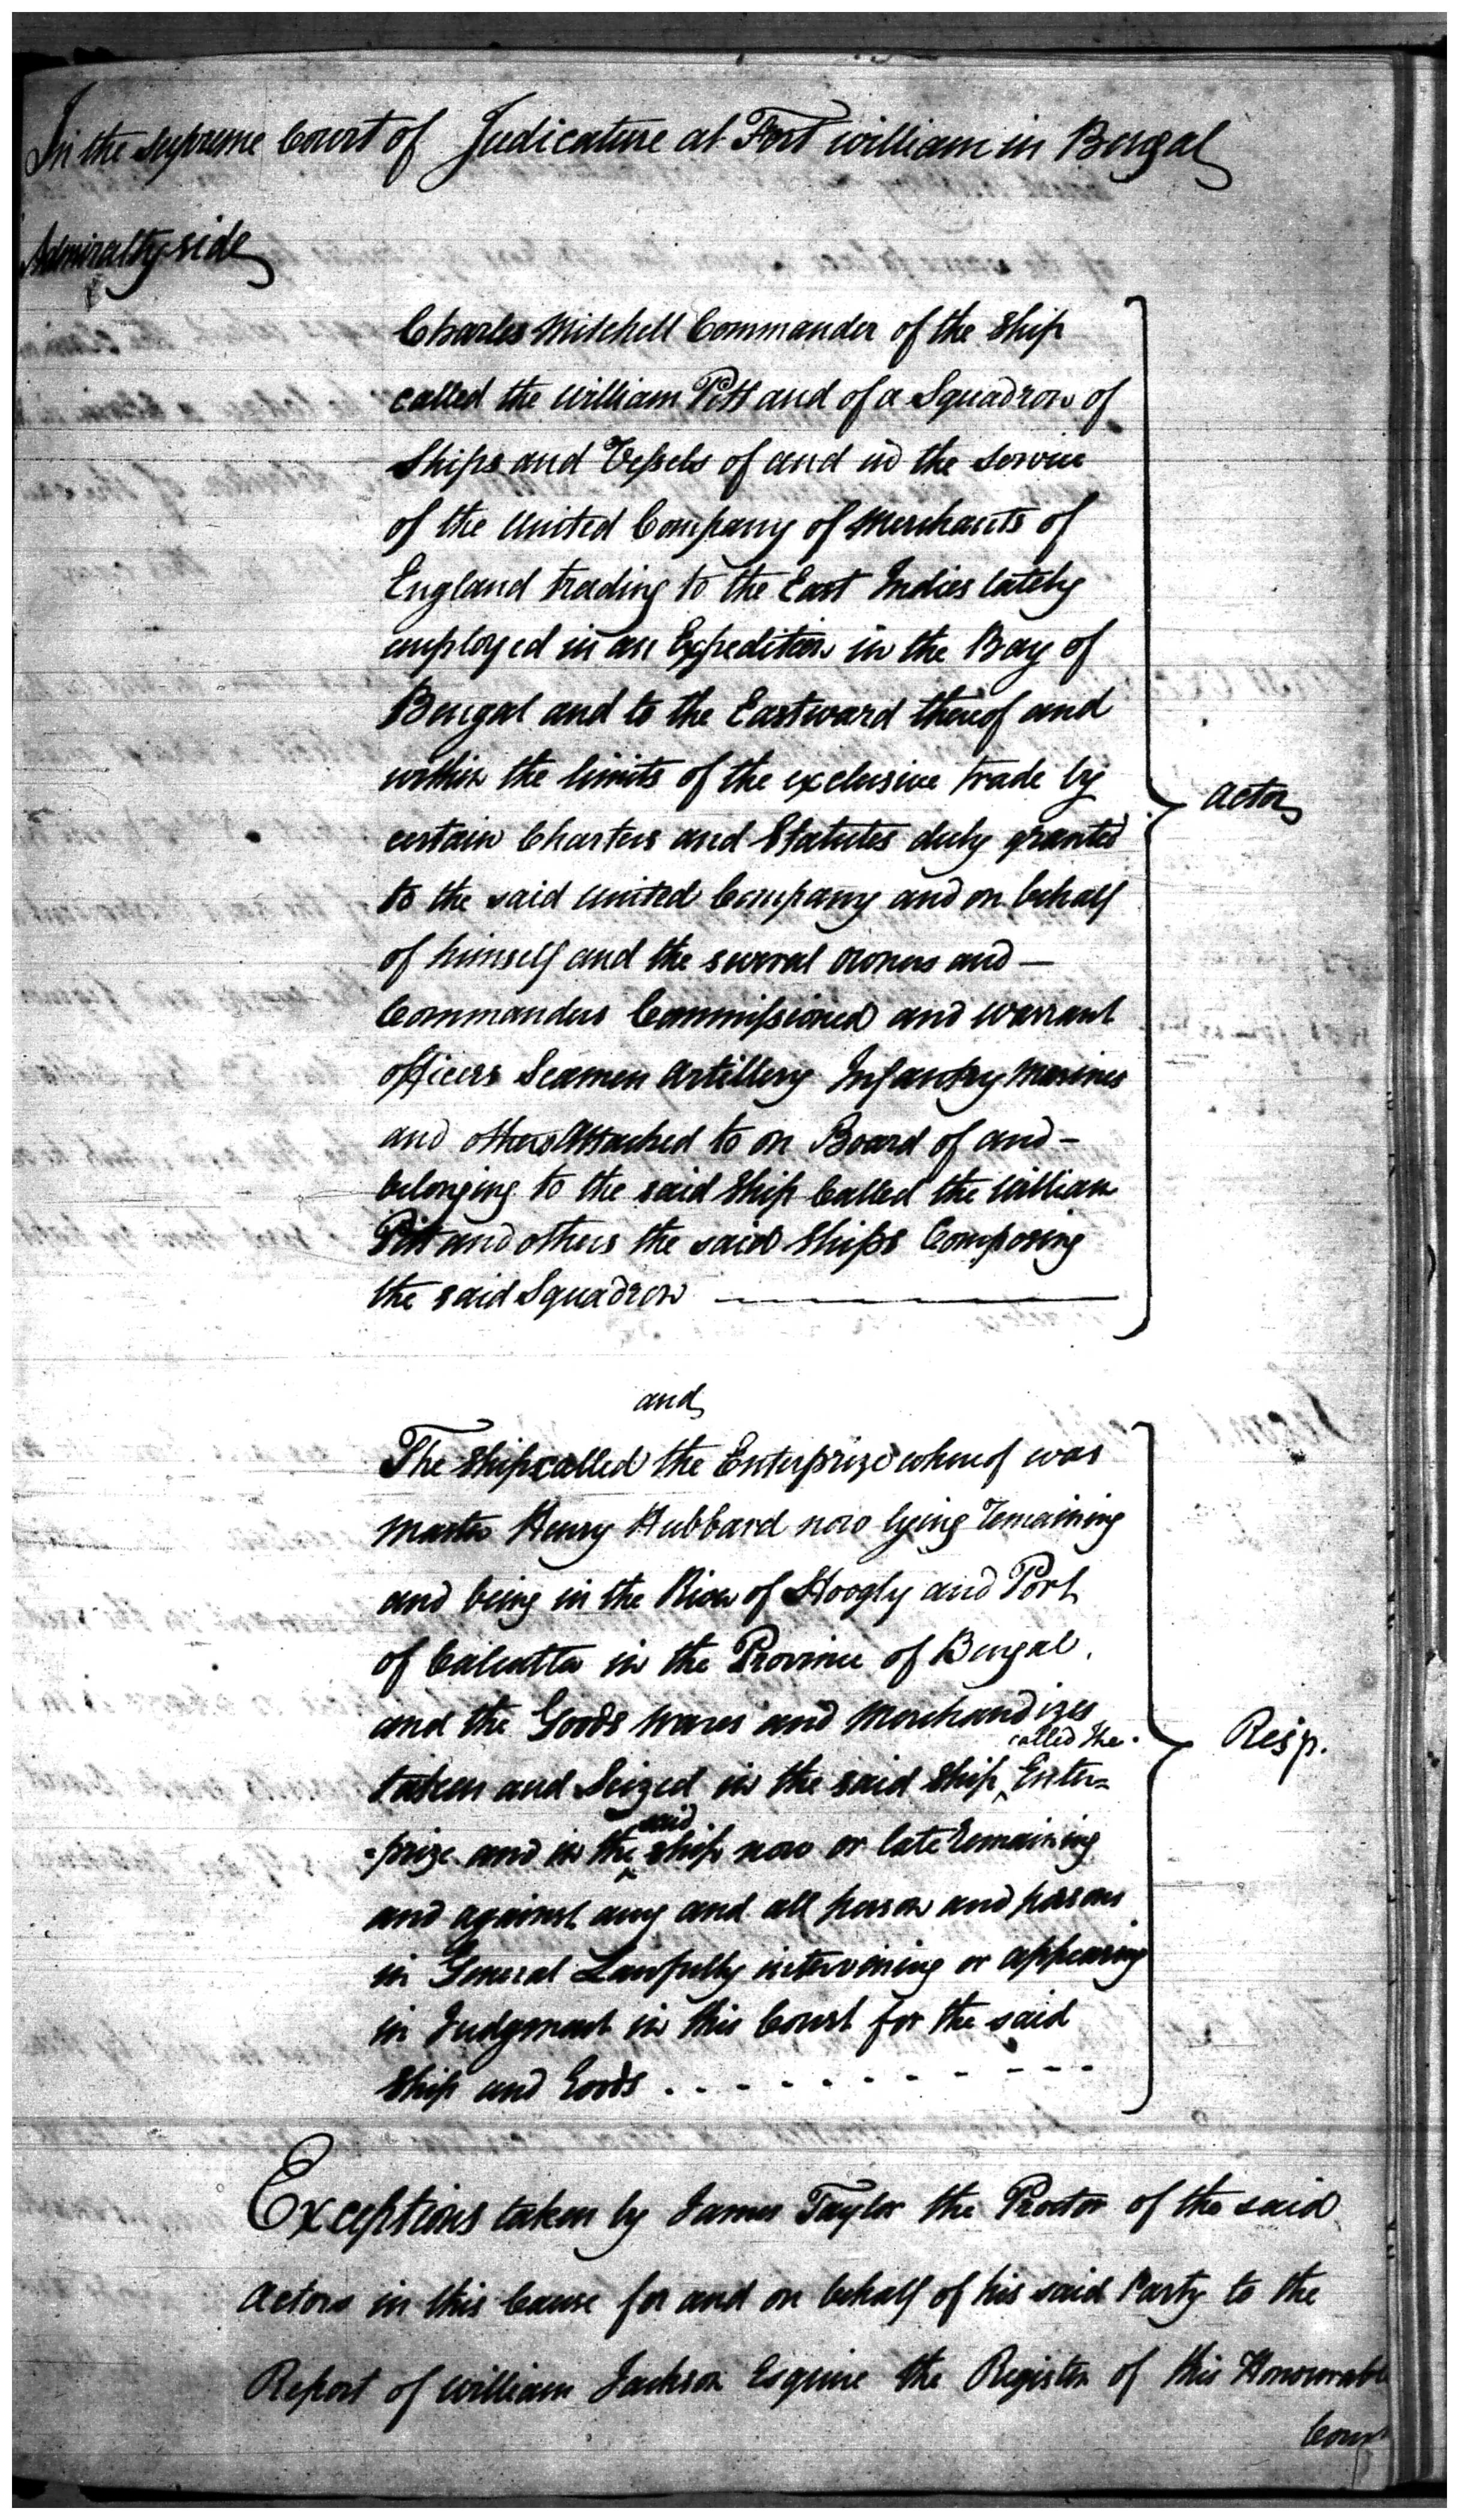 In the Supreme Court of Judicature at Fort William in Bengal
Admiralty side
Charles Mitchell Commander of the Ship
called the William Pitt and of a Squadron of
Ships and Vessels of and in the Service
of the United Company of Merchants of
England trading to the East Indies lately
employed in an Expedition in the Bay of
Bengal and to the Eastward thereof and
within the limits of the exclusive trade by
certain Charters and Statutes duly granted
to the said United Company and on behalf
of himself and the several owners and —
Commanders Commissioned and Warrant
officers Seamen Artillery Infantry Marines
and others Attached to on Board of and -
belonging to the said Ship Called the William
Pitt and others the said Ships Composing
the said Squadron
Actor
and
The Ship called the Enterprize whereof was
Master Henry Hubbard now lying remaining
and being in the River of Hoogly and Port
of Calcutta in the Province of Bengal.
and the Goods wares and Merchandizes
called the
taken and Seized in the said Ship ^ Enter=
said
-prize and in the ^ ship now or late remaining
and against any and all person and persons
in General Lawfully intervening or appearing
in Judgment in this Court for the said
Ship and Goods . - - - - - - - - -
Resp.
Exceptions taken by James Taylor the Proctor of the said
Actors in this Cause for and on behalf of his said Party to the
Report of William Jackson Esquire the Register of this Honourable
Court